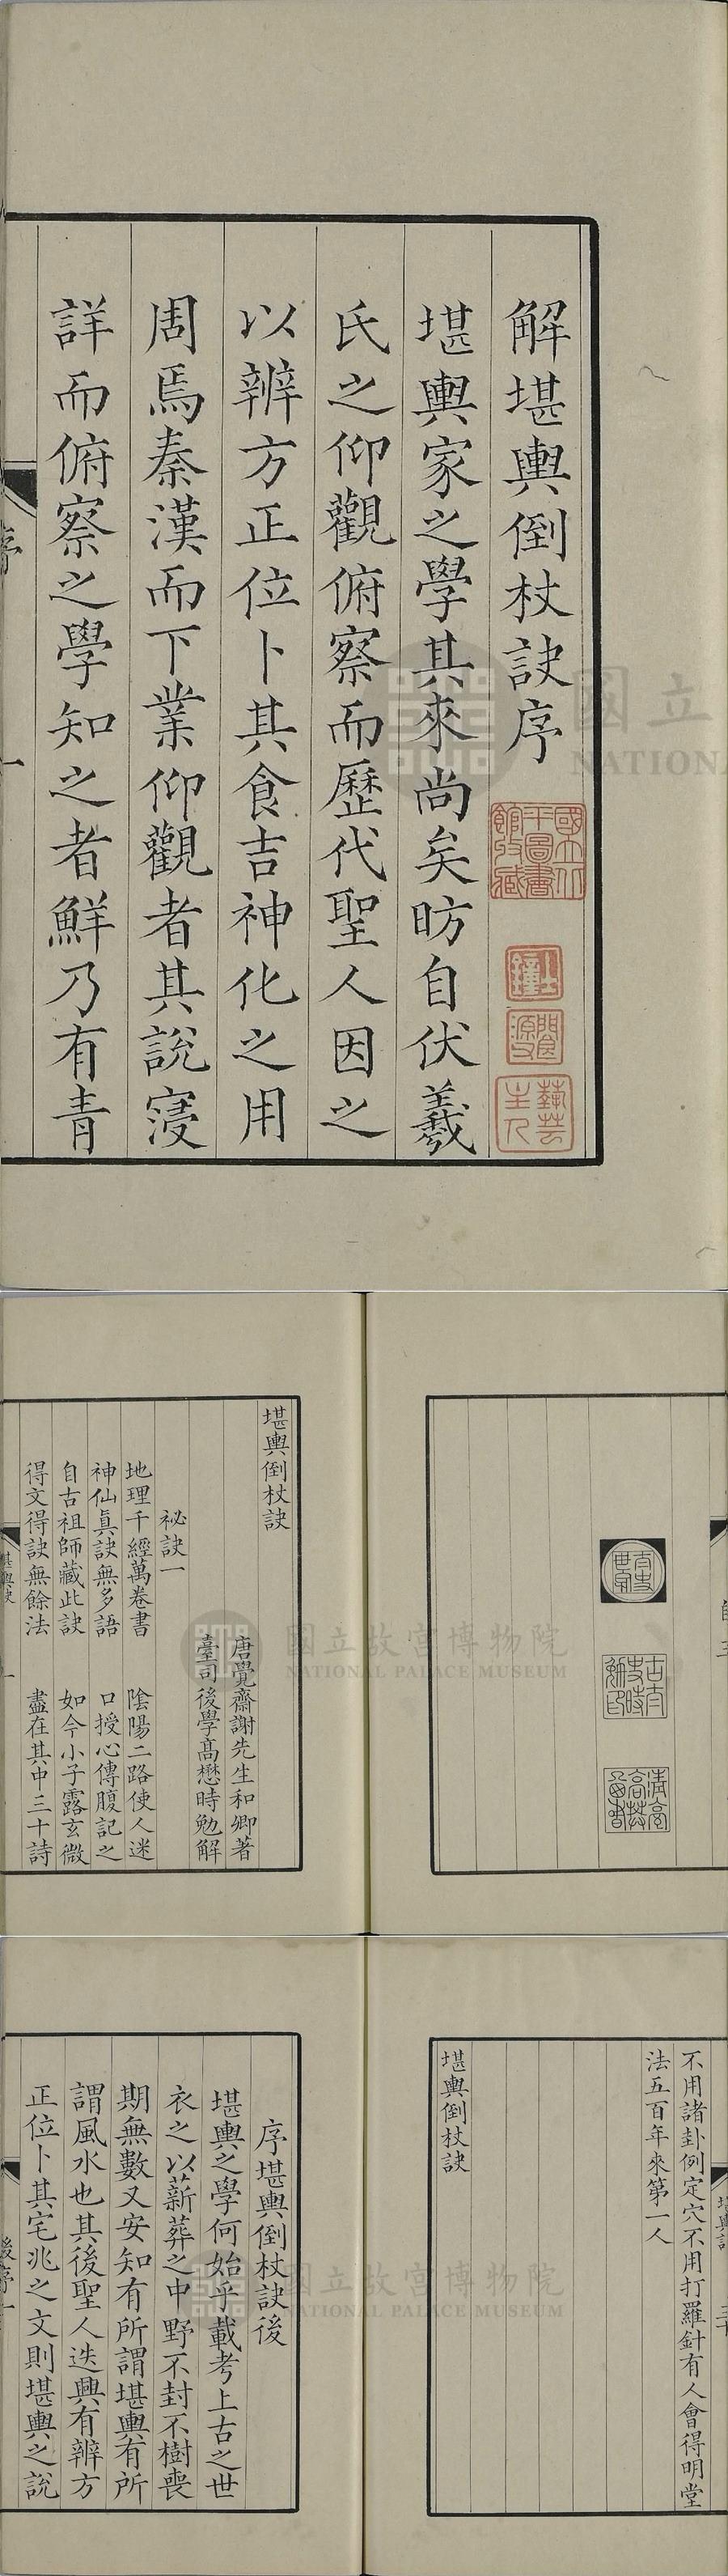 解堪輿倒杖訣序
堪輿家之學其來尚矣昉自伏羲
氏之仰觀俯察而歷代聖人因之
以辨方正位卜其食吉神化之用
周焉秦漢而下業仰觀者其說寖
詳而俯察之學知之者鮮乃有青
序
一
國立北平圖書館收藏
國立
NATIONA
堪輿倒杖訣
唐覺齋謝先生和卿著
臺司後學高懋時勉解
祕訣一
地理千經萬卷書 陰陽二路使人迷
神仙眞訣無多語 口授心傳腹記之
自古祖師藏此訣 如今小子露玄微
得文得訣無餘法 盡在其中三十詩
堪輿訣
一
國立故宮博物院
NATIONAL PALACE MUSEUM
不用諸卦例定穴不用打羅針有人會得明堂
法五百年來第一人
堪輿倒杖訣
序堪輿倒杖訣後
堪輿之學何始乎載考上古之世
衣之以薪葬之中野不封不樹喪
期無數又安知有所謂堪輿有所
謂風水也其後聖人迭興有辨方
正位卜其宅兆之文則堪輿之說
後序
一
國立故宮博物院
NATIONAL PALACE MUSEUM